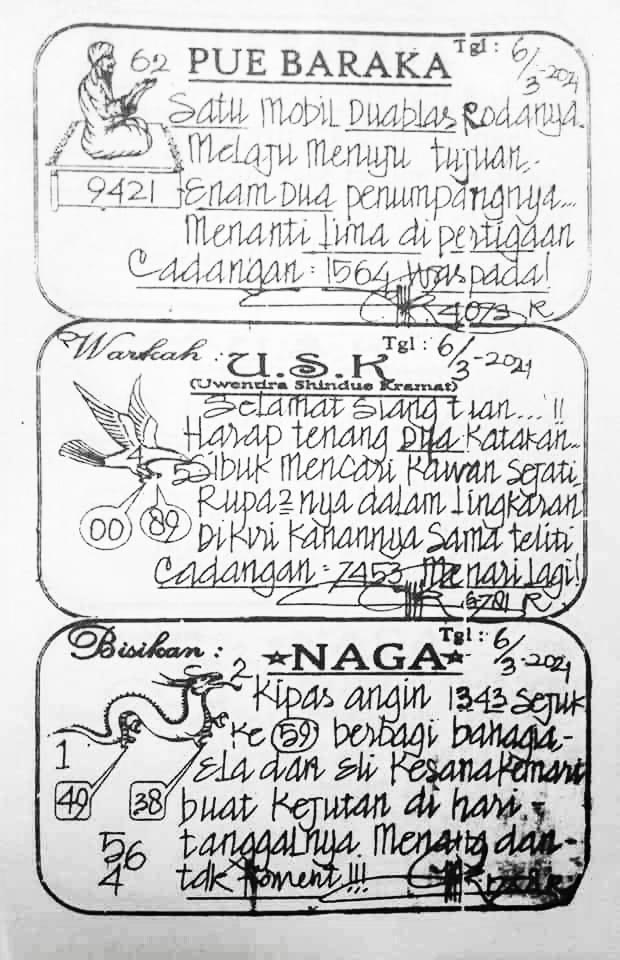 Tgl : 6/3-2021
62 PUE BARAKA
Satu Mobil Duablas Rodanya.
Melaju Menuju tujuan..
9421
Enam Dua penumpangnya...
Menanti Lima di pertigaan
Cadangan : 1564 Waspada!
4073 R
Warkah : U.S.K Tgl : 6/3-2021
(Uwentira Shindue Kramat)
Selamat siang tuan...!!
Harap tenang Dua katakan..
4
Sibuk Mencari Kawan Sejati,
Rupa2nya dalam Lingkaran
00 89
Dikiri Kanannya Sama teliti
Cadangan : 7453 Menari Lagi!
R 6781 R
Bisikan : Tgl : 6/3-2021
NAGA
2
Kipas angin 1343 Sejuk
Ke 59 berbagi bahagia-
1
Ela dan Eli Kesana Kemari
49 38
buat Kejutan di hari -
5 6
4
tanggalnya. Menang dan-
tdk Koment !!!